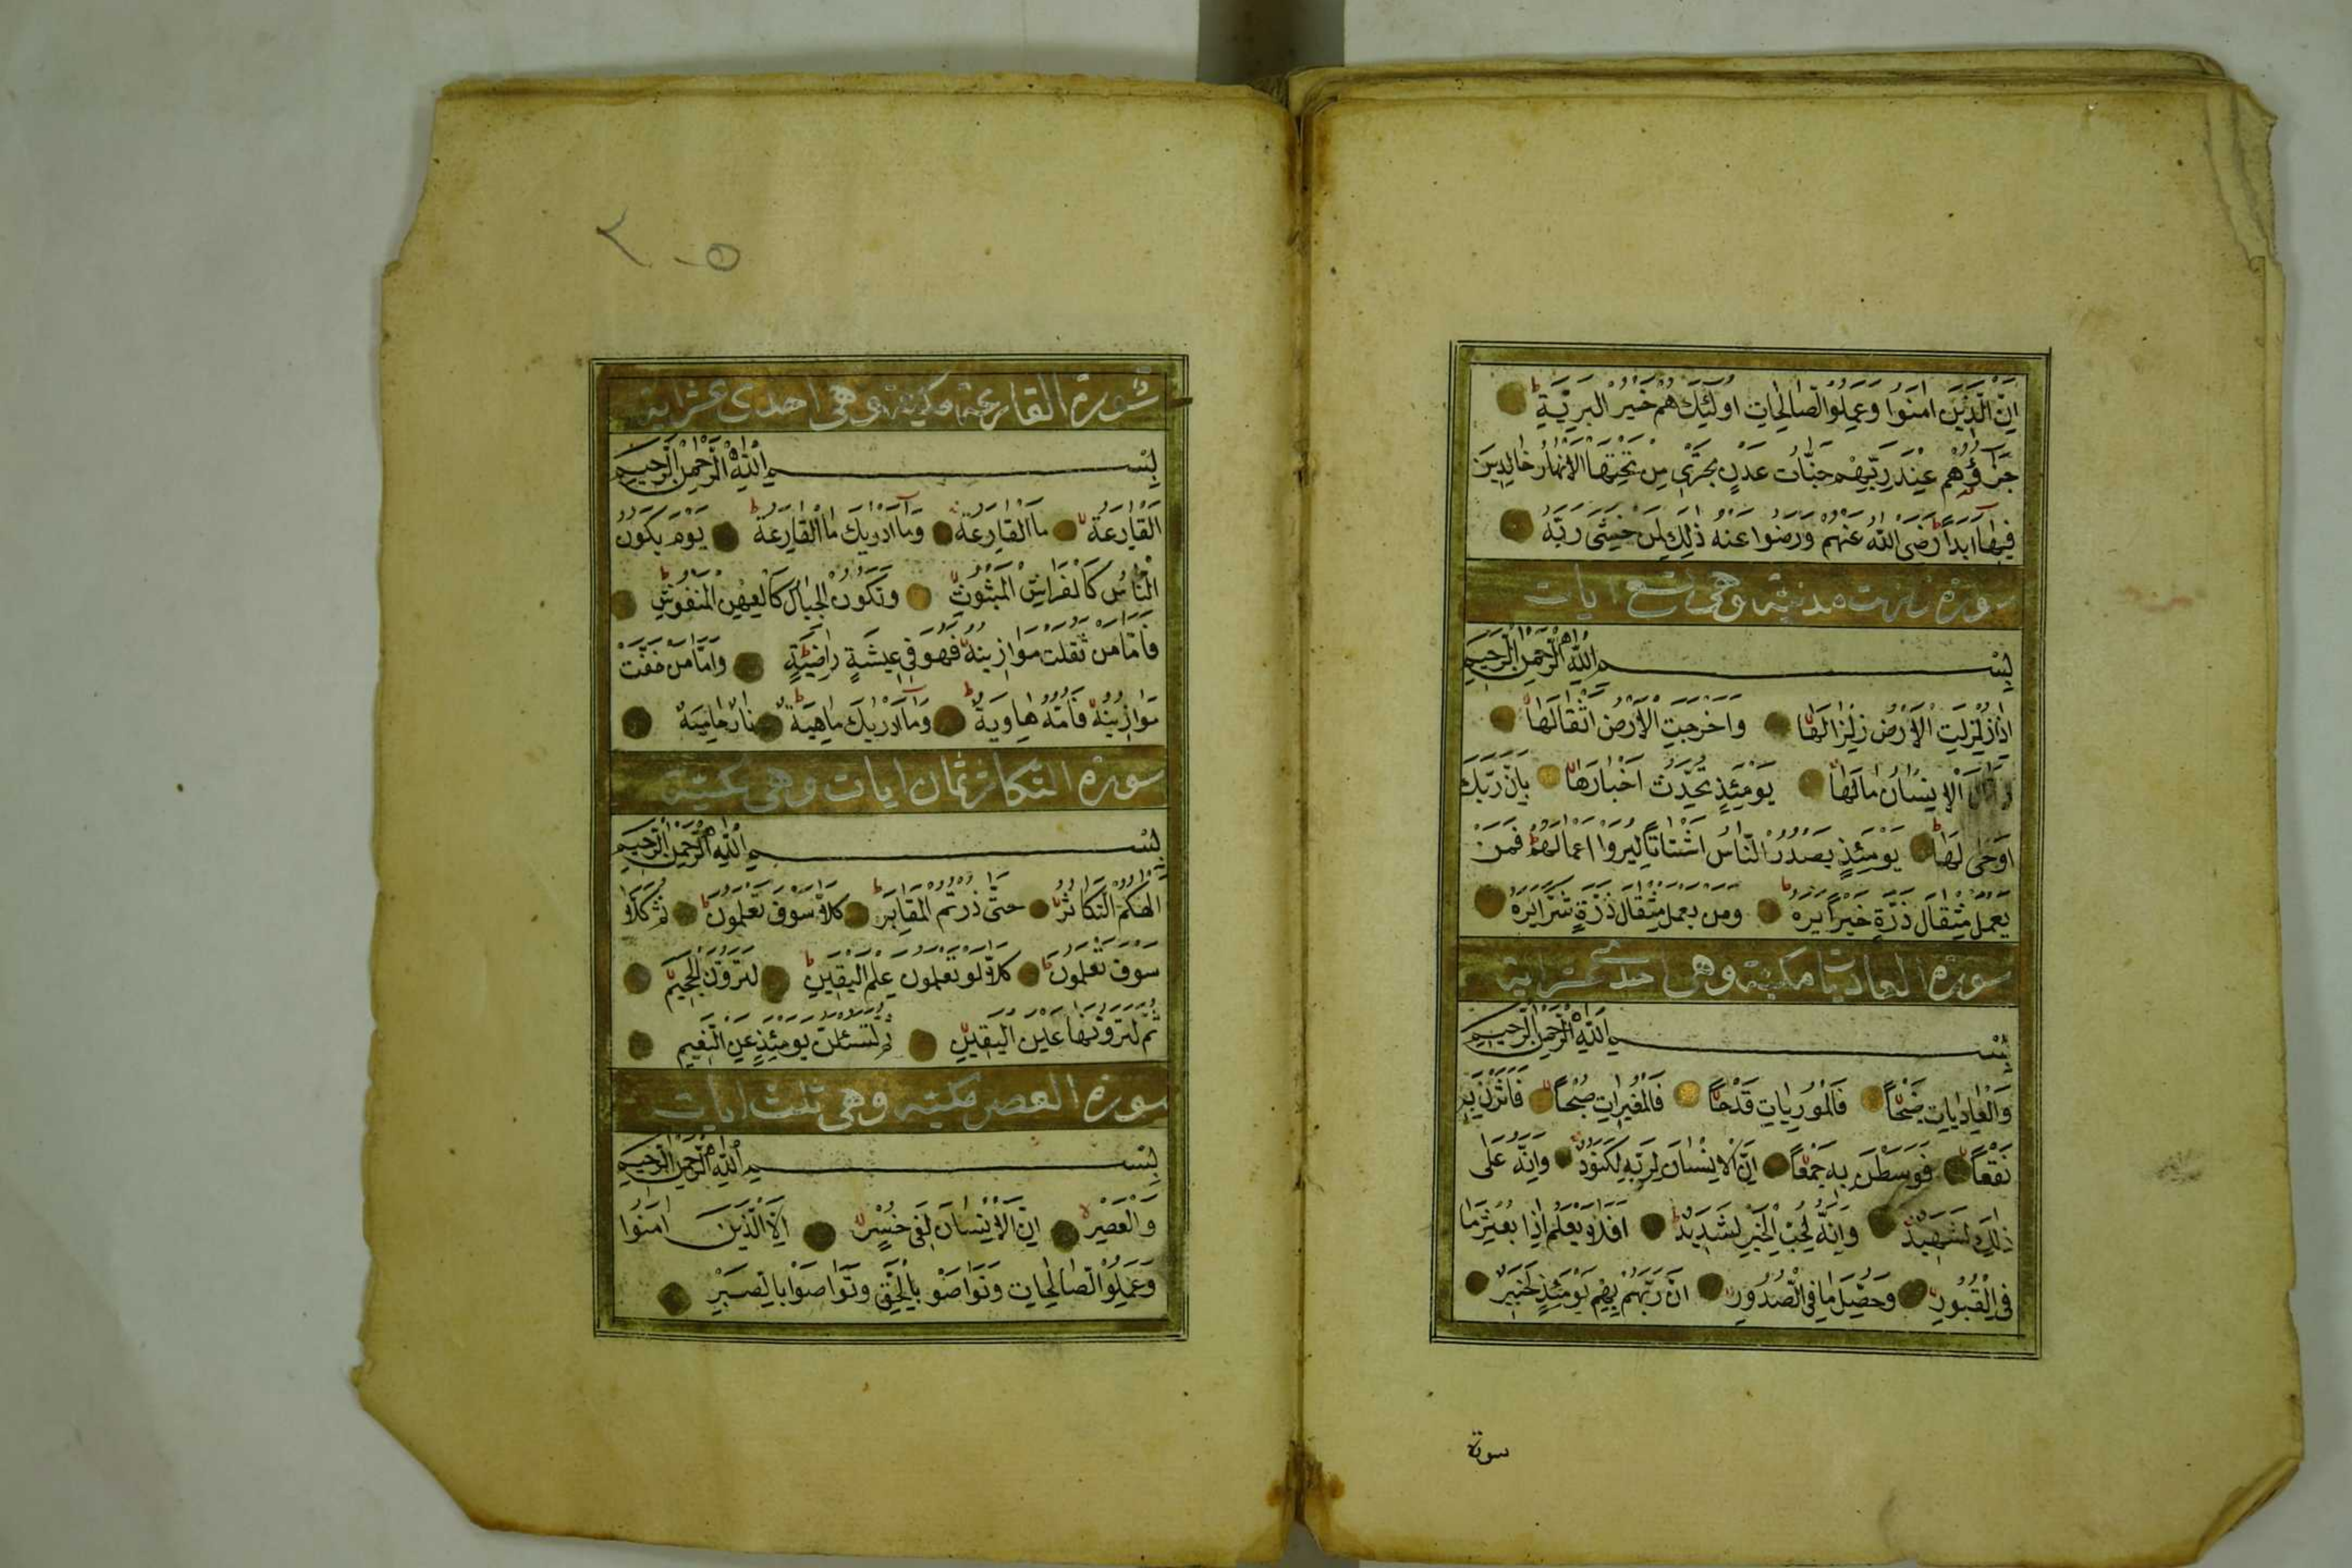 اِنَّ الَّذِينَ اٰمَنُوا وَعَمِلُوا الصَّالِحَاتِ اُولٰئِكَ هُمْ خَيْرُ الْبَرِيَّةِ
جَزَاؤُهُمْ عِنْدَ رَبِّهِمْ جَنَّاتُ عَدْنٍ تَجْرِي مِنْ تَحْتِهَا الْاَنْهَارُ خَالِدِينَ
فِيهَا اَبَدًا رَضِيَ اللّٰهُ عَنْهُمْ وَرَضُوا عَنْهُ ذٰلِكَ لِمَنْ خَشِيَ رَبَّهُ
سورة زلزلت مدنية وهى تسع ايات
بِسْمِ اللّٰهِ الرَّحْمٰنِ الرَّحِيمِ
اِذَا زُلْزِلَتِ الْاَرْضُ زِلْزَالَهَا وَاَخْرَجَتِ الْاَرْضُ اَثْقَالَهَا
وَقَالَ الْاِنْسَانُ مَا لَهَا يَوْمَئِذٍ تُحَدِّثُ اَخْبَارَهَا بِاَنَّ رَبَّكَ
اَوْحٰى لَهَا يَوْمَئِذٍ يَصْدُرُ النَّاسُ اَشْتَاتًا لِيُرَوْا اَعْمَالَهُمْ فَمَنْ
يَعْمَلْ مِثْقَالَ ذَرَّةٍ خَيْرًا يَرَهُ وَمَنْ يَعْمَلْ مِثْقَالَ ذَرَّةٍ شَرًّا يَرَهُ
سورة العاديات مكية وهى احدى عشر اية
بِسْمِ اللّٰهِ الرَّحْمٰنِ الرَّحِيمِ
وَالْعَادِيَاتِ ضَبْحًا فَالْمُورِيَاتِ قَدْحًا فَالْمُغِيرَاتِ صُبْحًا فَاَثَرْنَ بِهِ
نَقْعًا فَوَسَطْنَ بِهِ جَمْعًا اِنَّ الْاِنْسَانَ لِرَبِّهِ لَكَنُودٌ وَاِنَّهُ عَلٰى
ذٰلِكَ لَشَهِيدٌ وَاِنَّهُ لِحُبِّ الْخَيْرِ لَشَدِيدٌ اَفَلَا يَعْلَمُ اِذَا بُعْثِرَ مَا
فِي الْقُبُورِ وَحُصِّلَ مَا فِي الصُّدُورِ اِنَّ رَبَّهُمْ بِهِمْ يَوْمَئِذٍ لَخَبِيرٌ
سورة
٢٠٥
سورة القارعة مكية وهى احدى عشر اية
بِسْمِ اللّٰهِ الرَّحْمٰنِ الرَّحِيمِ
اَلْقَارِعَةُ مَا الْقَارِعَةُ وَمَا اَدْرٰيكَ مَا الْقَارِعَةُ يَوْمَ يَكُونُ
النَّاسُ كَالْفَرَاشِ الْمَبْثُوثِ وَتَكُونُ الْجِبَالُ كَالْعِهْنِ الْمَنْفُوشِ
فَاَمَّا مَنْ ثَقُلَتْ مَوَازِينُهُ فَهُوَ فِي عِيشَةٍ رَاضِيَةٍ وَاَمَّا مَنْ خَفَّتْ
مَوَازِينُهُ فَاُمُّهُ هَاوِيَةٌ وَمَا اَدْرٰيكَ مَاهِيَهْ نَارٌ حَامِيَةٌ
سورة التكاثر ثمان ايات وهى مكية
بِسْمِ اللّٰهِ الرَّحْمٰنِ الرَّحِيمِ
اَلْهٰكُمُ التَّكَاثُرُ حَتّٰى زُرْتُمُ الْمَقَابِرَ كَلَّا سَوْفَ تَعْلَمُونَ ثُمَّ كَلَّا
سَوْفَ تَعْلَمُونَ كَلَّا لَوْ تَعْلَمُونَ عِلْمَ الْيَقِينِ لَتَرَوُنَّ الْجَحِيمَ
ثُمَّ لَتَرَوُنَّهَا عَيْنَ الْيَقِينِ ثُمَّ لَتُسْئَلُنَّ يَوْمَئِذٍ عَنِ النَّعِيمِ
سورة العصر مكية وهى ثلث ايات
بِسْمِ اللّٰهِ الرَّحْمٰنِ الرَّحِيمِ
وَالْعَصْرِ اِنَّ الْاِنْسَانَ لَفِي خُسْرٍ اِلَّا الَّذِينَ اٰمَنُوا
وَعَمِلُوا الصَّالِحَاتِ وَتَوَاصَوْ بِالْحَقِّ وَتَوَاصَوْا بِالصَّبْرِ